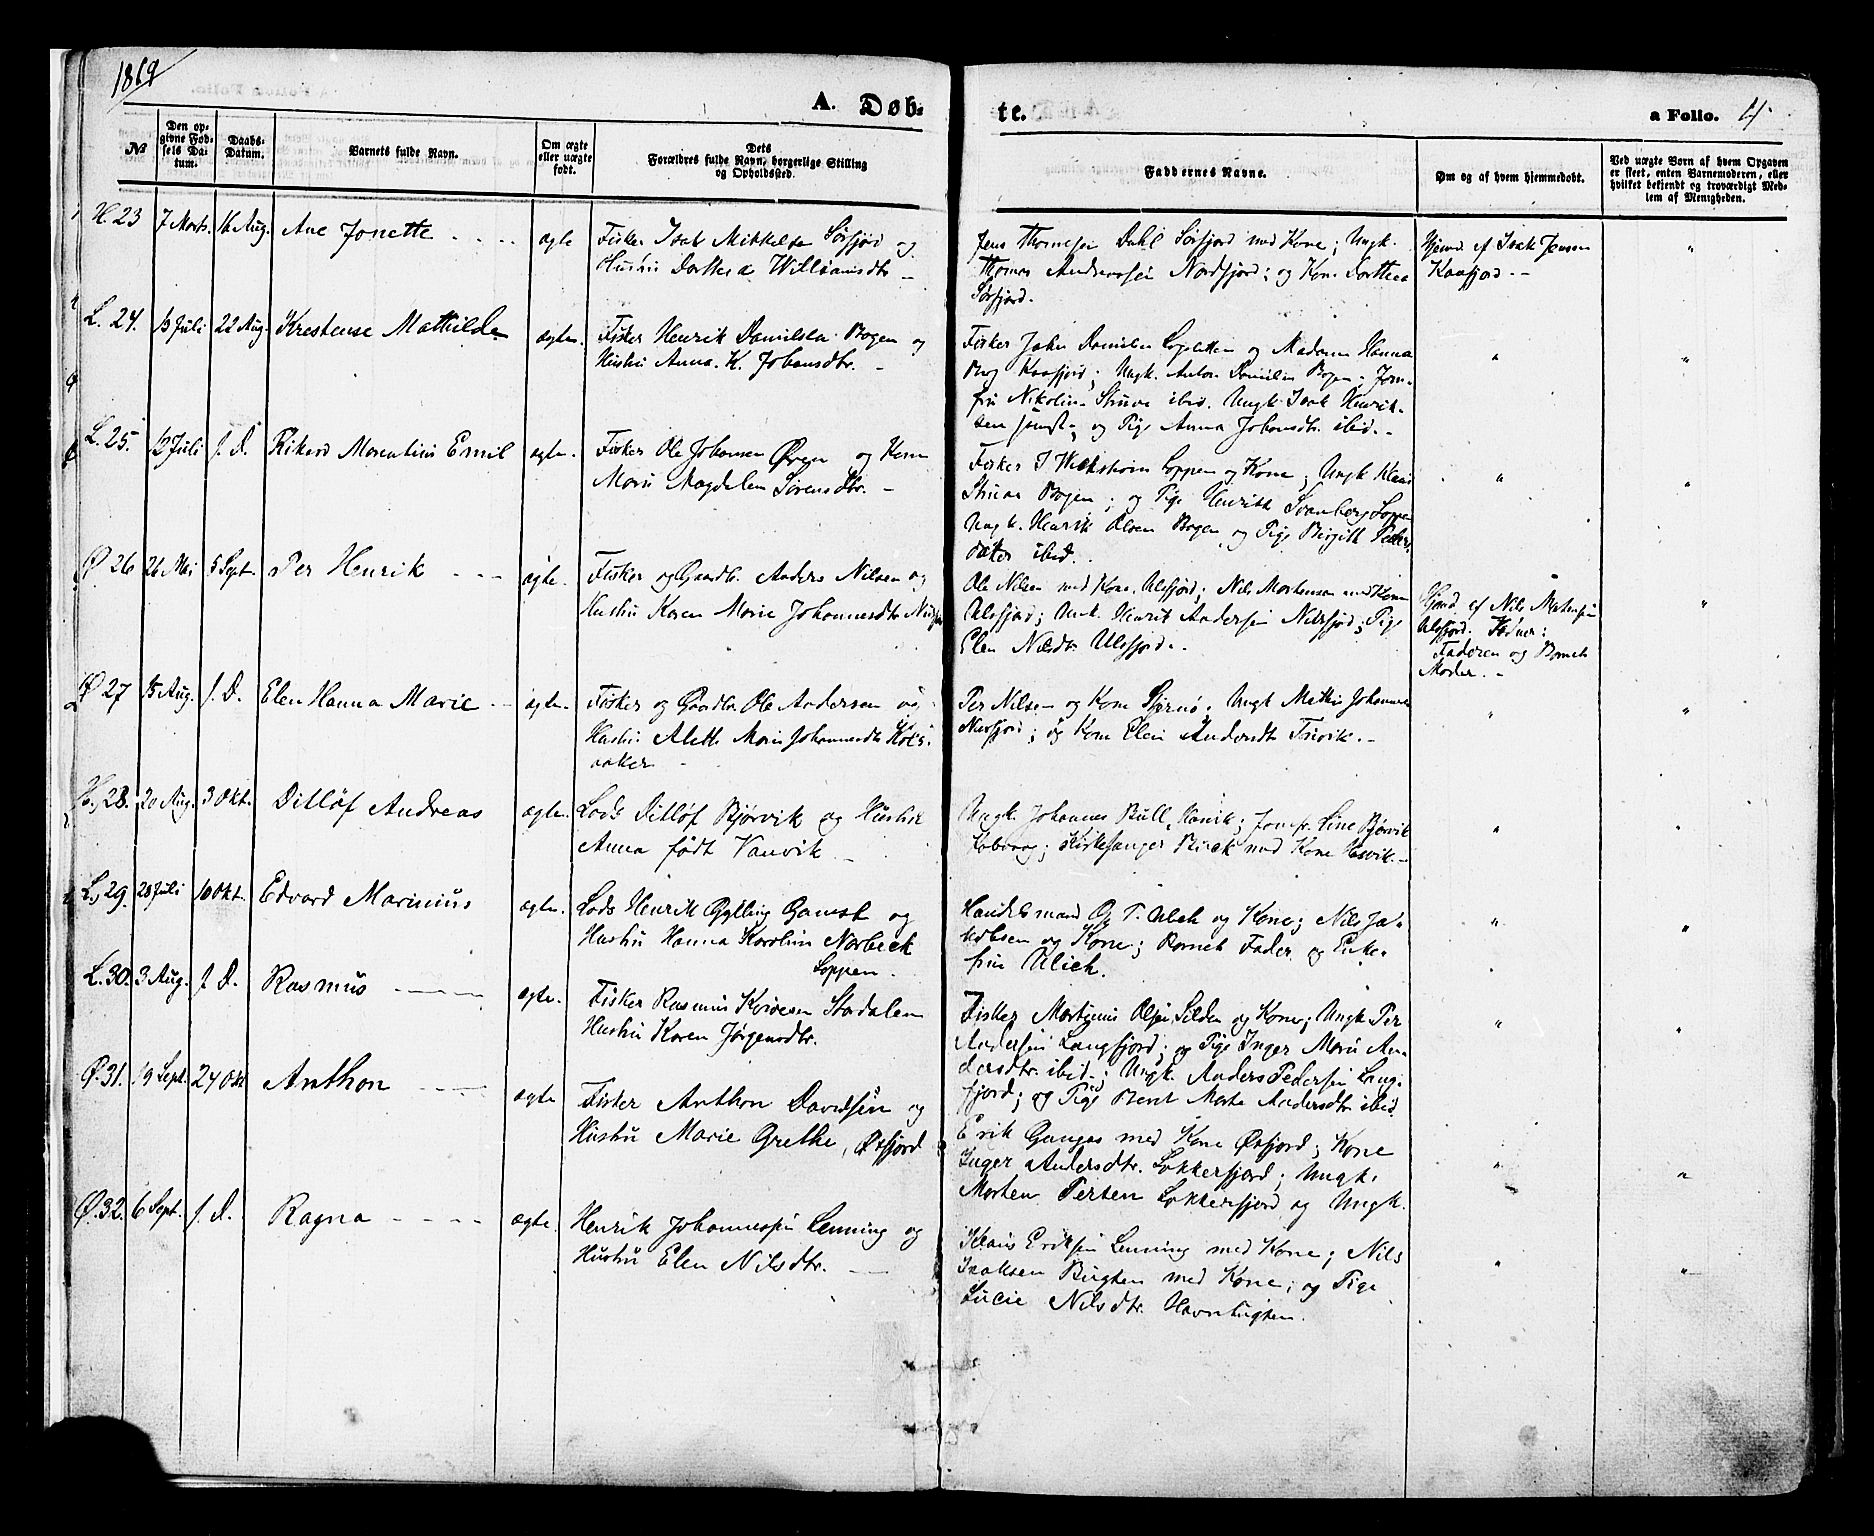 1869
A. Døb-
te.
a Folio. 4.
№
Den op-
givne Fød-
sels Da-
tum.
Daabs-
Datum.
Barnets fulde Navn.
Om ægte
eller uægte
født.
Dets
Forældres fulde Navn, borgerlige Stilling
og Opholdssted.
Faddernes Navne.
Om og af hvem hjemmedøbt.
Ved uægte Børn af hvem Opgaven
er skeet, enten Barnemoderen, eller
hvilket bekjendt og troværdigt Med-
lem af Menigheden.
H. 23 7 Marts. 16 Aug. Ane Jonette ægte
Fisker Isak Mikkelsen Sørfjord og
Hustru Dorthea Williamsdtr
Jens Thomesen Dahl Sørfjord med Kone; Ungk.
Thomas Andreassen Nordfjord; og Kone Dorthea
Sørfjord.
Hjemd. af Isak Jensen
Kaafjord. "
L. 24. 13 Juli 22 Aug. Krestense Mathilde ægte.
Fisker Henrik Danielsen Bogen og
Hustru Anna K. Johansdtr.
Fisker John Danielsen og Madame Hanna
Berg Kaafjord; Ungk. Anton Danielsen Bogen; Jom-
fru Nikolin Struve ibid. Ungk. Isak Henrik-
sen og Pige Anna Johansdtr. ibid.
" "
L. 25. 12 Juli s. D. Rikard Morentius Emil ægte.
Fisker Ole Johansen Øren og Kone
Maria Magdalen Sørensdtr.
Fisker J Wickstrøm Loppen og Kone; Ungk Klaus
Struve Bogen; og Pige Henrikke Svanberg Loppen
Ungk. Henrik Olsen Bogen og Pige Birgith Peders
datter ibid.
" "
Ø 26 26 Mai 5 Sept. Per Henrik ægte.
Fisker og Gaardbr. Anders Nilsen og
Hustru Karen Marie Johannesdtr
Ole Nilsen med Kone, Ulsfjord; Nils Mortensen med Kone
Ulsfjord; Unk. Henrik Andersen Nilsfjord; Pige
Elen Nilsdtr Ulsfjord.
Hjemd. af Nils Mortensen
Ulsfjord.
Faderen og Barnets
Moder. "
Ø 27 15 Aug. s. D. Elen Hanna Marie ægte.
Fisker og Gaardbr Ole Andersen og
Hustru Aleth Marie Johannesdtr
Per Nilsen og Kone Stjernø; Ungk Mathis Johannesen
Nusfjord; og Kone Elen Andersdtr
" "
H. 28. 20 Aug. 3 Okt. Ditløf Andreas ægte.
Lods Ditløf Bjørvik og Hustru
Anna født Vanvik
Ungk. Johannes Bull, Jomfr. Sine Bjørvik
Kirkesanger med Kone Hasvik.
" "
L. 29. 28 Juli 10 Okt. Edvard Marinius ægte.
Lods Henrik Gylling Gamst og
Hustru Hanna Karoline Norbeck
Loppen.
Handelsmand O. T. Ulich og Kone; Nils Ja-
kobsen og Kone; Barnets Fader og Enke-
fru Ulich.
" "
L. 30. 3 Aug. s. D. Rasmus ægte.
Fisker Rasmus Stardalen
Hustru Karen Jørgensdtr.
Fisker Mortinius Olsen Silden og Kone; Ungk Per
Andersen Langfjord; og Pige Inger Marie An-
dersdtr. ibid; Ungk. Anders Pedersen Lang-
fjord; og Pige Berit Marte Andersdtr ibid.
" "
Ø. 31. 19 Sept. 24 Okt Anthon ægte
Fisker Anthon Davidsen og
Hustru Marie Grethe, Øxfjord
Erik Gangas med Kone Øxfjord; Kone
Inger Andersdtr. Lokkersfjord; Ungk.
Morten Persen Lokkersfjord og Ungk.
" "
Ø. 32. 6 Sept. s. D. Ragna ægte.
Henrik Johannessen Lenning og
Hustru Elen Nilsdtr.
Klaus Eriksen Lenning med Kone; Nils
Isaksen Bugten med Kone; og Pige
Lucie Nilsdtr. Havnbugten.
" "